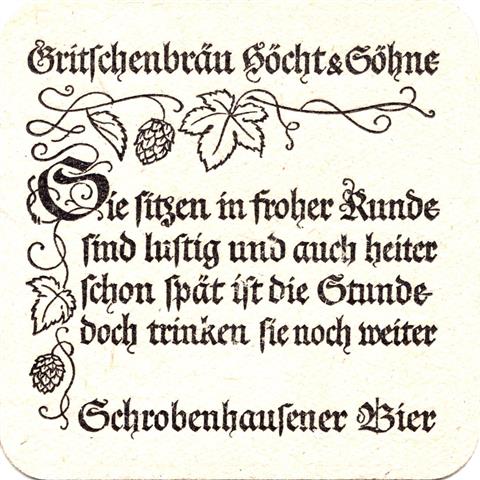 Gritschenbräu Höcht & Söhne
Sie sitzen in froher Runde
sind lustig und auch heiter
schon spät ist die Stunde
doch trinken sie noch weiter
Schrobenhausener Bier